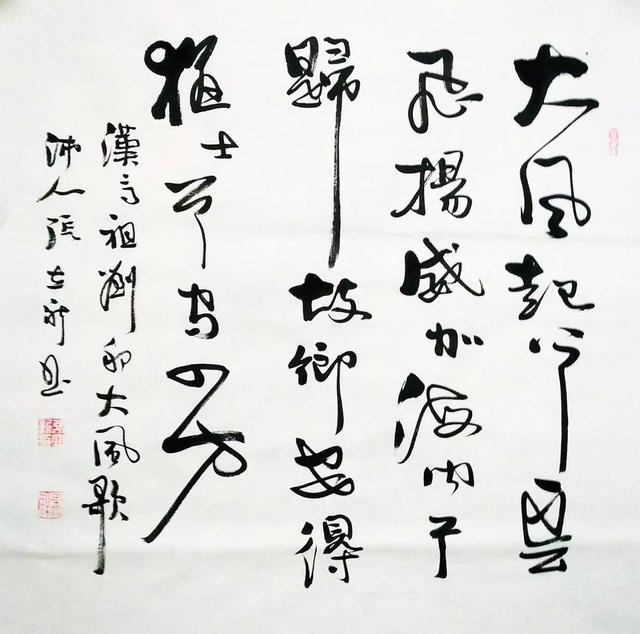 大風起兮雲
飛揚威加海内兮
歸故鄉安得
猛士兮守四方
漢高祖劉邦大風歌
沛人張新書